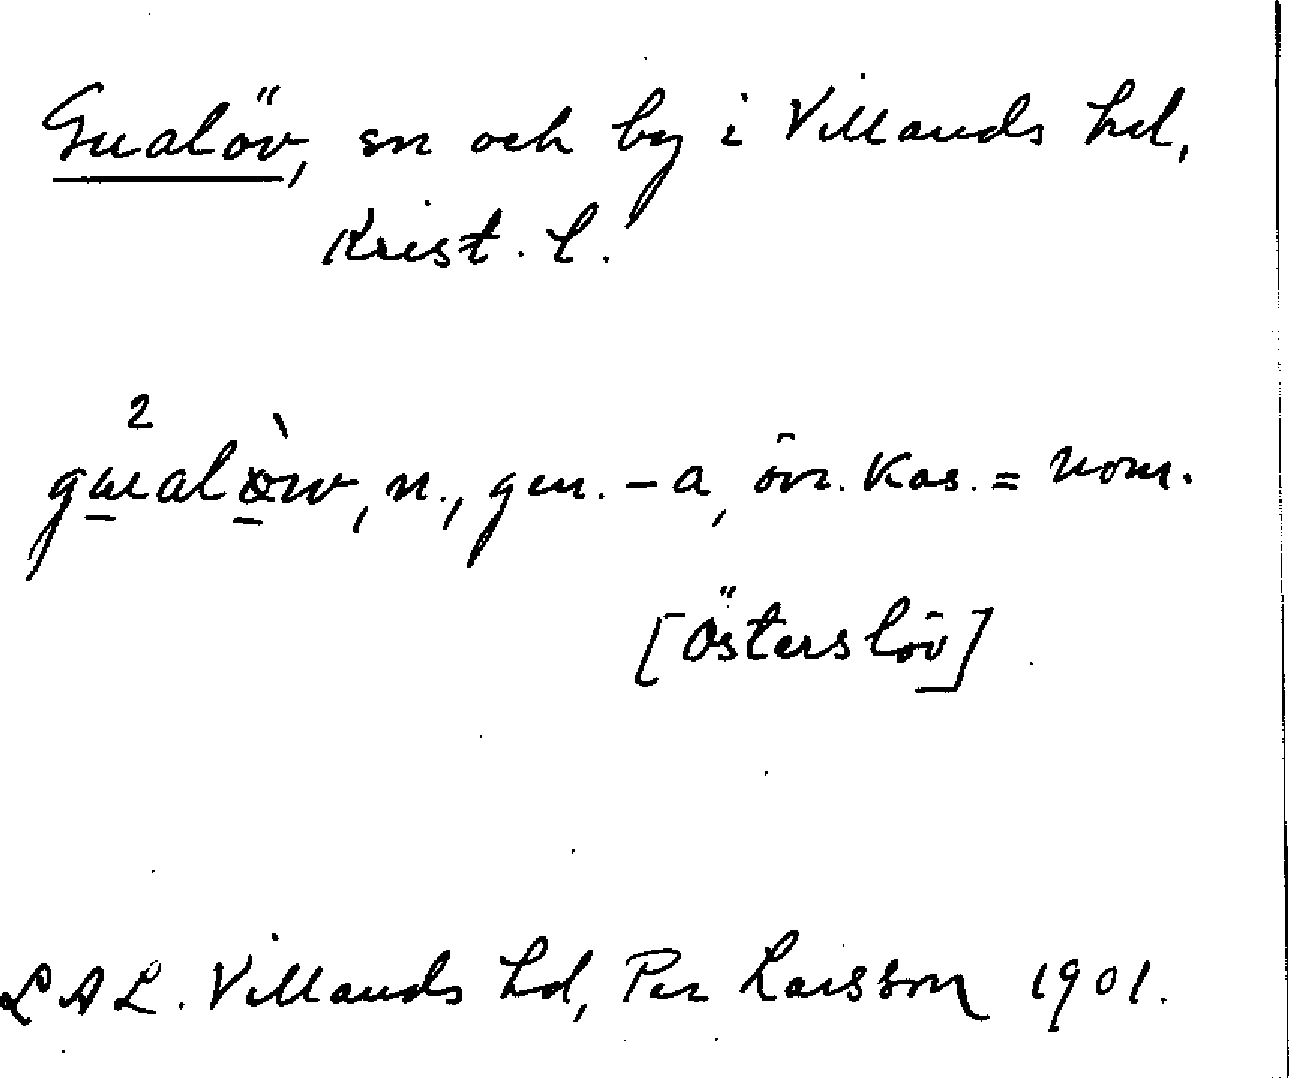 Gualöv, sn och by i Villands hd,
Krist. l.
2
gualòw, n., gen. -a, övr. kas. = nom.
[Österslöv]
LAL. Villands hd, Per Larsson 1901.